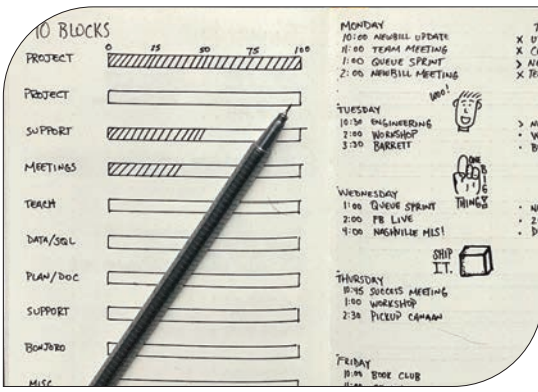 10 BLOCKS
0 25 50 75 100
PROJECT
PROJECT
SUPPORT
MEETINGS
TEACH
DATA/SQL
PLAN/DOC
SUPPORT
BONJORO
MISC
MONDAY
10:00 NEWBILL UPDATE
11:00 TEAM MEETING
1:00 QUEUE SPRINT
2:00 NEWBILL MEETING
WOO!
TUESDAY
10:30 ENGINEERING
2:00 WORKSHOP
3:30 BARRETT
ONE
BIG
THING!
WEDNESDAY
1:00 QUEUE SPRINT
2:00 FB LIVE
4:00 NASHVILLE MLS!
SHIP
I.T.
THURSDAY
10:45 SUCCESS MEETING
1:00 WORKSHOP
2:30 PICKUP CANAAN
FRIDAY
10:00 BOOK CLUB